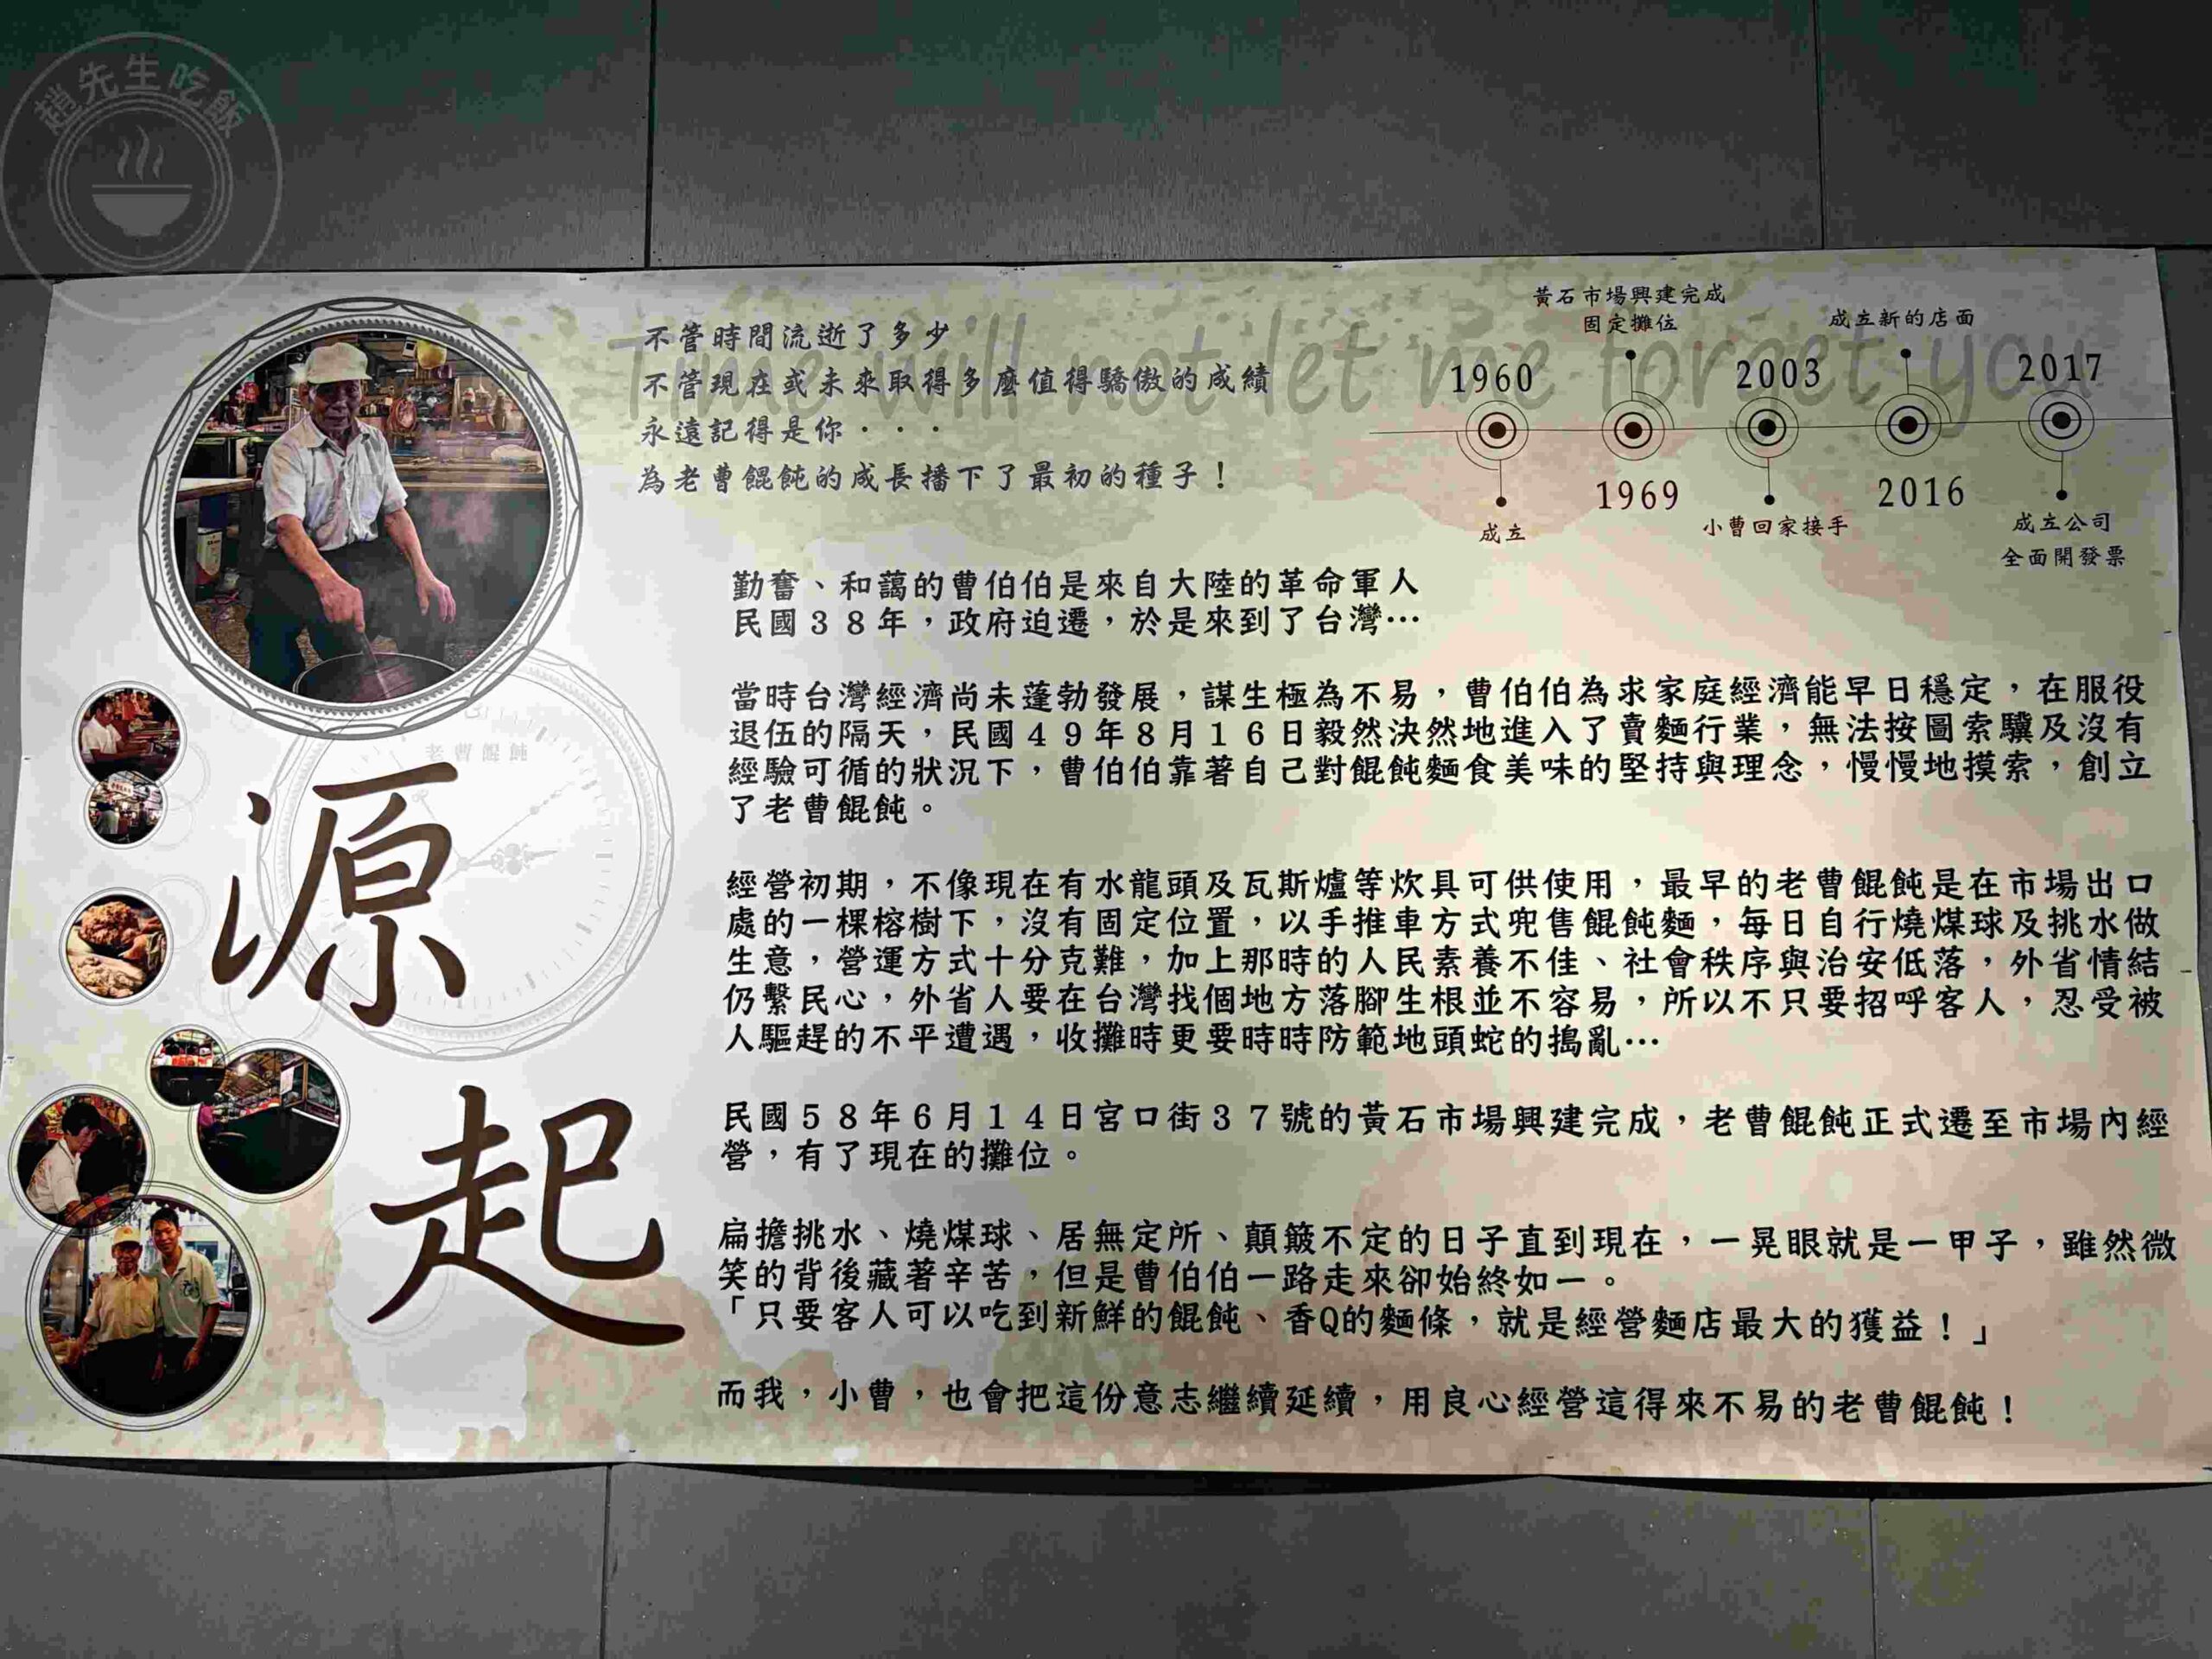 趙先生吃飯
Time will not let me forget you
不管時間流逝了多少
不管現在或未來取得多麼值得驕傲的成績
永遠記得是你・・・
為老曹餛飩的成長播下了最初的種子！
1960
成立
黃石市場興建完成
固定攤位
1969
2003
小曹回家接手
成立新的店面
2016
2017
成立公司
全面開發票
老曹餛飩
源
起
勤奮、和藹的曹伯伯是來自大陸的革命軍人
民國３８年，政府迫遷，於是來到了台灣…
當時台灣經濟尚未蓬勃發展，謀生極為不易，曹伯伯為求家庭經濟能早日穩定，在服役
退伍的隔天，民國４９年８月１６日毅然決然地進入了賣麵行業，無法按圖索驥及沒有
經驗可循的狀況下，曹伯伯靠著自己對餛飩麵食美味的堅持與理念，慢慢地摸索，創立
了老曹餛飩。
經營初期，不像現在有水龍頭及瓦斯爐等炊具可供使用，最早的老曹餛飩是在市場出口
處的一棵榕樹下，沒有固定位置，以手推車方式兜售餛飩麵，每日自行燒煤球及挑水做
生意，營運方式十分克難，加上那時的人民素養不佳、社會秩序與治安低落，外省情結
仍繫民心，外省人要在台灣找個地方落腳生根並不容易，所以不只要招呼客人，忍受被
人驅趕的不平遭遇，收攤時更要時時防範地頭蛇的搗亂…
民國５８年６月１４日宮口街３７號的黃石市場興建完成，老曹餛飩正式遷至市場內經
營，有了現在的攤位。
扁擔挑水、燒煤球、居無定所、顛簸不定的日子直到現在，一晃眼就是一甲子，雖然微
笑的背後藏著辛苦，但是曹伯伯一路走來卻始終如一。
「只要客人可以吃到新鮮的餛飩、香Q的麵條，就是經營麵店最大的獲益！」
而我，小曹，也會把這份意志繼續延續，用良心經營這得來不易的老曹餛飩！